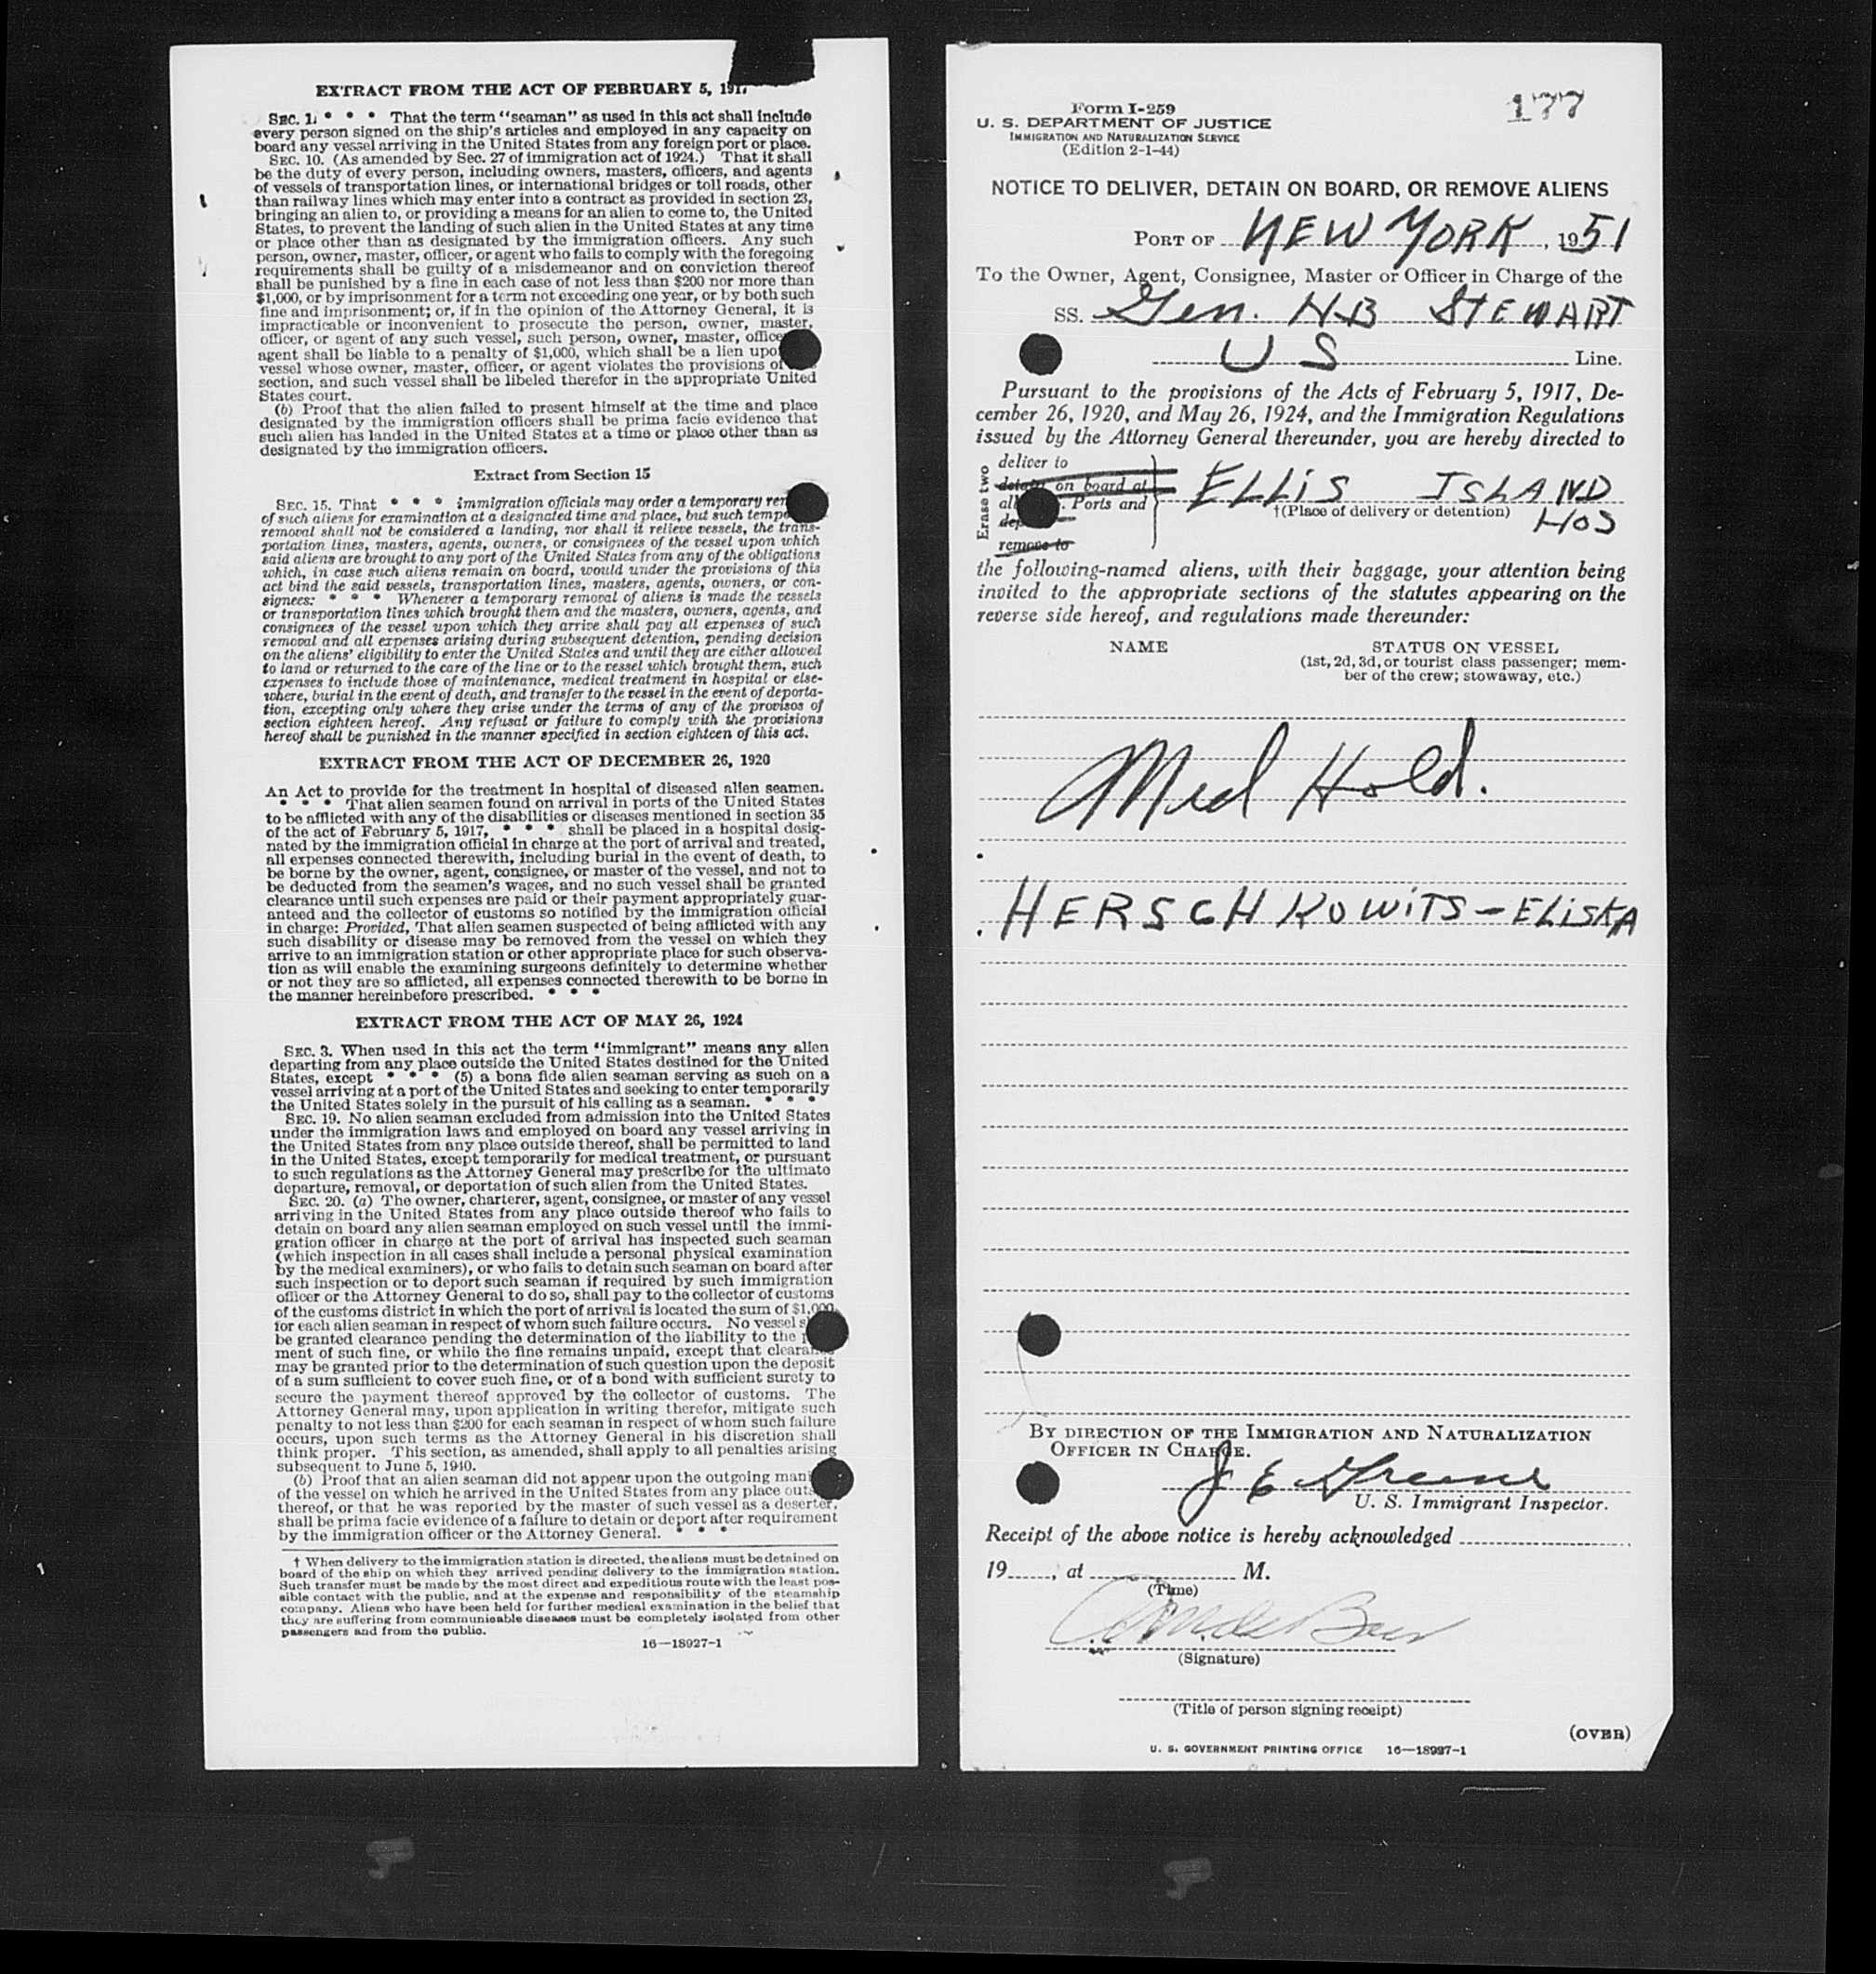 EXTRACT FROM THE ACT OF FEBRUARY 5, 191
SEC. 1. * * * That the term "seaman" as used in this act shall include
every person signed on the ship's articles and employed in any capacity on
board any vessel arriving in the United States from any foreign port or place.
SEC. 10. (As amended by Sec. 27 of immigration act of 1924.) That it shall
be the duty of every person, including owners, masters, officers, and agents
of vessels of transportation lines, or international bridges or toll roads, other
than railway lines which may enter into a contract as provided in section 23,
bringing an alien to, or providing a means for an alien to come to, the United
States, to prevent the landing of such alien in the United States at any time
or place other than as designated by the immigration officers. Any such
person, owner, master, officer, or agent who fails to comply with the foregoing
requirements shall be guilty of a misdemeanor and on conviction thereof
shall be punished by a fine in each case of not less than $200 nor more than
$1,000, or by imprisonment for a term not exceeding one year, or by both such
fine and imprisonment; or, if in the opinion of the Attorney General, it is
impracticable or inconvenient to prosecute the person, owner, master,
officer, or agent of any such vessel, such person, owner, master, office
agent shall be liable to a penalty of $1,000, which shall be a lien upo
vessel whose owner, master, officer, or agent violates the provisions of
section, and such vessel shall be libeled therefor in the appropriate United
States court.
(b) Proof that the alien failed to present himself at the time and place
designated by the immigration officers shall be prima facie evidence that
such alien has landed in the United States at a time or place other than as
designated by the immigration officers.
Extract from Section 15
SEC. 15. That * * * immigration officials may order a temporary rem
of such aliens for examination at a designated time and place, but such tempo
removal shall not be considered a landing, nor shall it relieve vessels, the trans-
portation lines, masters, agents, owners, or consignees of the vessel upon which
said aliens are brought to any port of the United States from any of the obligations
which, in case such aliens remain on board, would under the provisions of this
act bind the said vessels, transportation lines, masters, agents, owners, or con-
signees: * * * Whenever a temporary removal of aliens is made the vessels
or transportation lines which brought them and the masters, owners, agents, and
consignees of the vessel upon which they arrive shall pay all expenses of such
removal and all expenses arising during subsequent detention, pending decision
on the aliens' eligibility to enter the United States and until they are either allowed
to land or returned to the care of the line or to the vessel which brought them, such
expenses to include those of maintenance, medical treatment in hospital or else-
where, burial in the event of death, and transfer to the vessel in the event of deporta-
tion, excepting only where they arise under the terms of any of the provisos of
section eighteen hereof. Any refusal or failure to comply with the provisions
hereof shall be punished in the manner specified in section eighteen of this act.
EXTRACT FROM THE ACT OF DECEMBER 26, 1920
An Act to provide for the treatment in hospital of diseased alien seamen.
* * * That alien seamen found on arrival in ports of the United States
to be afflicted with any of the disabilities or diseases mentioned in section 35
of the act of February 5, 1917, * * * shall be placed in a hospital desig-
nated by the immigration official in charge at the port of arrival and treated,
all expenses connected therewith, including burial in the event of death, to
be borne by the owner, agent, consignee, or master of the vessel, and not to
be deducted from the seamen's wages, and no such vessel shall be granted
clearance until such expenses are paid or their payment appropriately guar-
anteed and the collector of customs so notified by the immigration official
in charge: Provided, That alien seamen suspected of being afflicted with any
such disability or disease may be removed from the vessel on which they
arrive to an immigration station or other appropriate place for such observa-
tion as will enable the examining surgeons definitely to determine whether
or not they are so afflicted, all expenses connected therewith to be borne in
the manner hereinbefore prescribed. * * *
EXTRACT FROM THE ACT OF MAY 26, 1924
SEC. 3. When used in this act the term "immigrant" means any alien
departing from any place outside the United States destined for the United
States, except * * * (5) a bona fide alien seaman serving as such on a
vessel arriving at a port of the United States and seeking to enter temporarily
the United States solely in the pursuit of his calling as a seaman. * * *
SEC. 19. No alien seaman excluded from admission into the United States
under the immigration laws and employed on board any vessel arriving in
the United States from any place outside thereof, shall be permitted to land
in the United States, except temporarily for medical treatment, or pursuant
to such regulations as the Attorney General may prescribe for the ultimate
departure, removal, or deportation of such alien from the United States.
SEC. 20. (a) The owner, charterer, agent, consignee, or master of any vessel
arriving in the United States from any place outside thereof who fails to
detain on board any alien seaman employed on such vessel until the immi-
gration officer in charge at the port of arrival has inspected such seaman
(which inspection in all cases shall include a personal physical examination
by the medical examiners), or who fails to detain such seaman on board after
such inspection or to deport such seaman if required by such immigration
officer or the Attorney General to do so, shall pay to the collector of customs
of the customs district in which the port of arrival is located the sum of $1,000
for each alien seaman in respect of whom such failure occurs. No vessel s
be granted clearance pending the determination of the liability to the p
ment of such fine, or while the fine remains unpaid, except that clearan
may be granted prior to the determination of such question upon the deposit
of a sum sufficient to cover such fine, or of a bond with sufficient surety to
secure the payment thereof approved by the collector of customs. The
Attorney General may, upon application in writing therefor, mitigate such
penalty to not less than $200 for each seaman in respect of whom such failure
occurs, upon such terms as the Attorney General in his discretion shall
think proper. This section, as amended, shall apply to all penalties arising
subsequent to June 5, 1940.
(b) Proof that an alien seaman did not appear upon the outgoing mani
of the vessel on which he arrived in the United States from any place outs
thereof, or that he was reported by the master of such vessel as a deserter,
shall be prima facie evidence of a failure to detain or deport after requirement
by the immigration officer or the Attorney General. * * *
† When delivery to the immigration station is directed, the aliens must be detained on
board of the ship on which they arrived pending delivery to the immigration station.
Such transfer must be made by the most direct and expeditious route with the least pos-
sible contact with the public, and at the expense and responsibility of the steamship
company. Aliens who have been held for further medical examination in the belief that
they are suffering from communicable diseases must be completely isolated from other
passengers and from the public.
16—18927-1
177
Form I-259
U. S. DEPARTMENT OF JUSTICE
IMMIGRATION AND NATURALIZATION SERVICE
(Edition 2-1-44)
NOTICE TO DELIVER, DETAIN ON BOARD, OR REMOVE ALIENS
PORT OF NEW YORK, 1951
To the Owner, Agent, Consignee, Master or Officer in Charge of the
SS. Gen. H B STEWART
U S Line.
Pursuant to the provisions of the Acts of February 5, 1917, De-
cember 26, 1920, and May 26, 1924, and the Immigration Regulations
issued by the Attorney General thereunder, you are hereby directed to
Erase two
deliver to
detain on board at
al . Ports and
dep
remove to
ELLIS ISLAND
†(Place of delivery or detention) HOS
the following-named aliens, with their baggage, your attention being
invited to the appropriate sections of the statutes appearing on the
reverse side hereof, and regulations made thereunder:
NAME STATUS ON VESSEL
(1st, 2d, 3d, or tourist class passenger; mem-
ber of the crew; stowaway, etc.)
Med Hold.
HERSCHKOWITS - ELISKA
BY DIRECTION OF THE IMMIGRATION AND NATURALIZATION
OFFICER IN CHARGE.
J E Greene
U. S. Immigrant Inspector.
Receipt of the above notice is hereby acknowledged
19 , at M.
(Time)
(Signature)
(Title of person signing receipt)
(OVER)
U. S. GOVERNMENT PRINTING OFFICE 16—18927-1